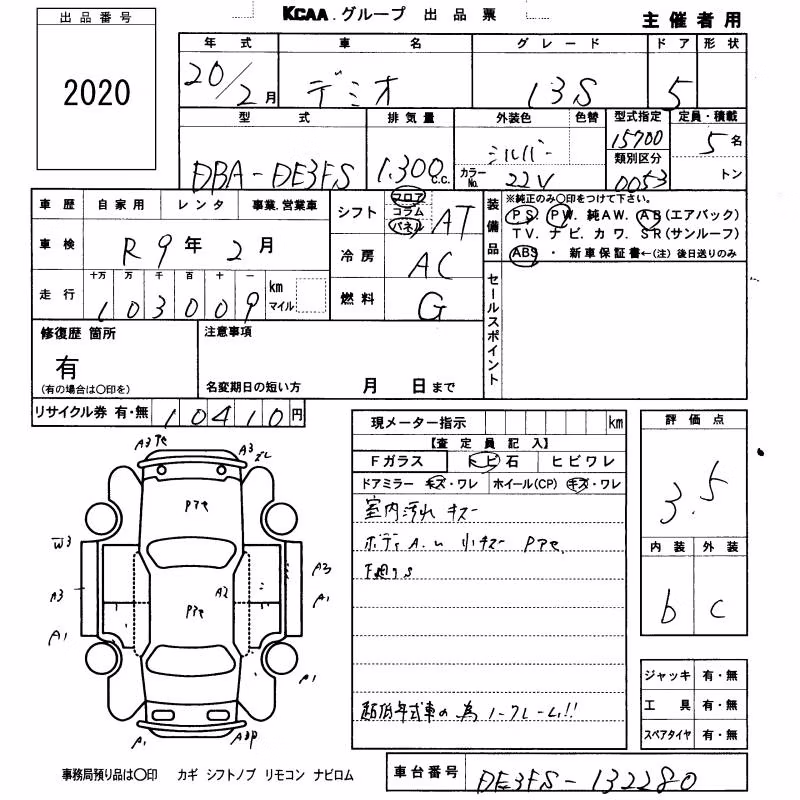 出品番号
2020
KCAA.グループ 出品票
主催者用
年式 車名 グレード ドア 形状
20/2月 デミオ 13S 5
型式 排気量 外装色 色替 型式指定 定員・積載
DBA-DE3FS 1,300c.c. シルバー 15700 5名
カラーNo. 22V 類別区分 0053 トン
車歴 自家用 レンタ 事業.営業車
シフト フロア コラム パネル AT
装備品
※純正のみ〇印をつけて下さい。
PS. PW. 純AW. AB(エアバック)
TV. ナビ. カワ. SR(サンルーフ)
ABS ・ 新車保証書←(注)後日送りのみ
車検 R9年2月
冷房 AC
走行 十万 万 千 百 十 一 km マイル
103009
燃料 G
セールスポイント
修復歴 箇所
有
(有の場合は〇印を)
注意事項
名変期日の短い方 月 日まで
リサイクル券 有・無 10410円
現メーター指示 km
【査定員記入】
Fガラス トビ石 ヒビワレ
ドアミラー キズ・ワレ ホイール(CP) キズ・ワレ
室内汚れ キズー
ボディA.u 小キズー Pアセ
超低年式車の為ノークレーム!!
評価点
3.5
内装 外装
b c
ジャッキ 有・無
工具 有・無
スペアタイヤ 有・無
A3 Pセ
A3
Pアセ
W3
A3
A1
A2
Pアセ
A3
A1
A1
A1
A3P
事務局預り品は〇印 カギ シフトノブ リモコン ナビロム
車台番号 DE3FS-132280